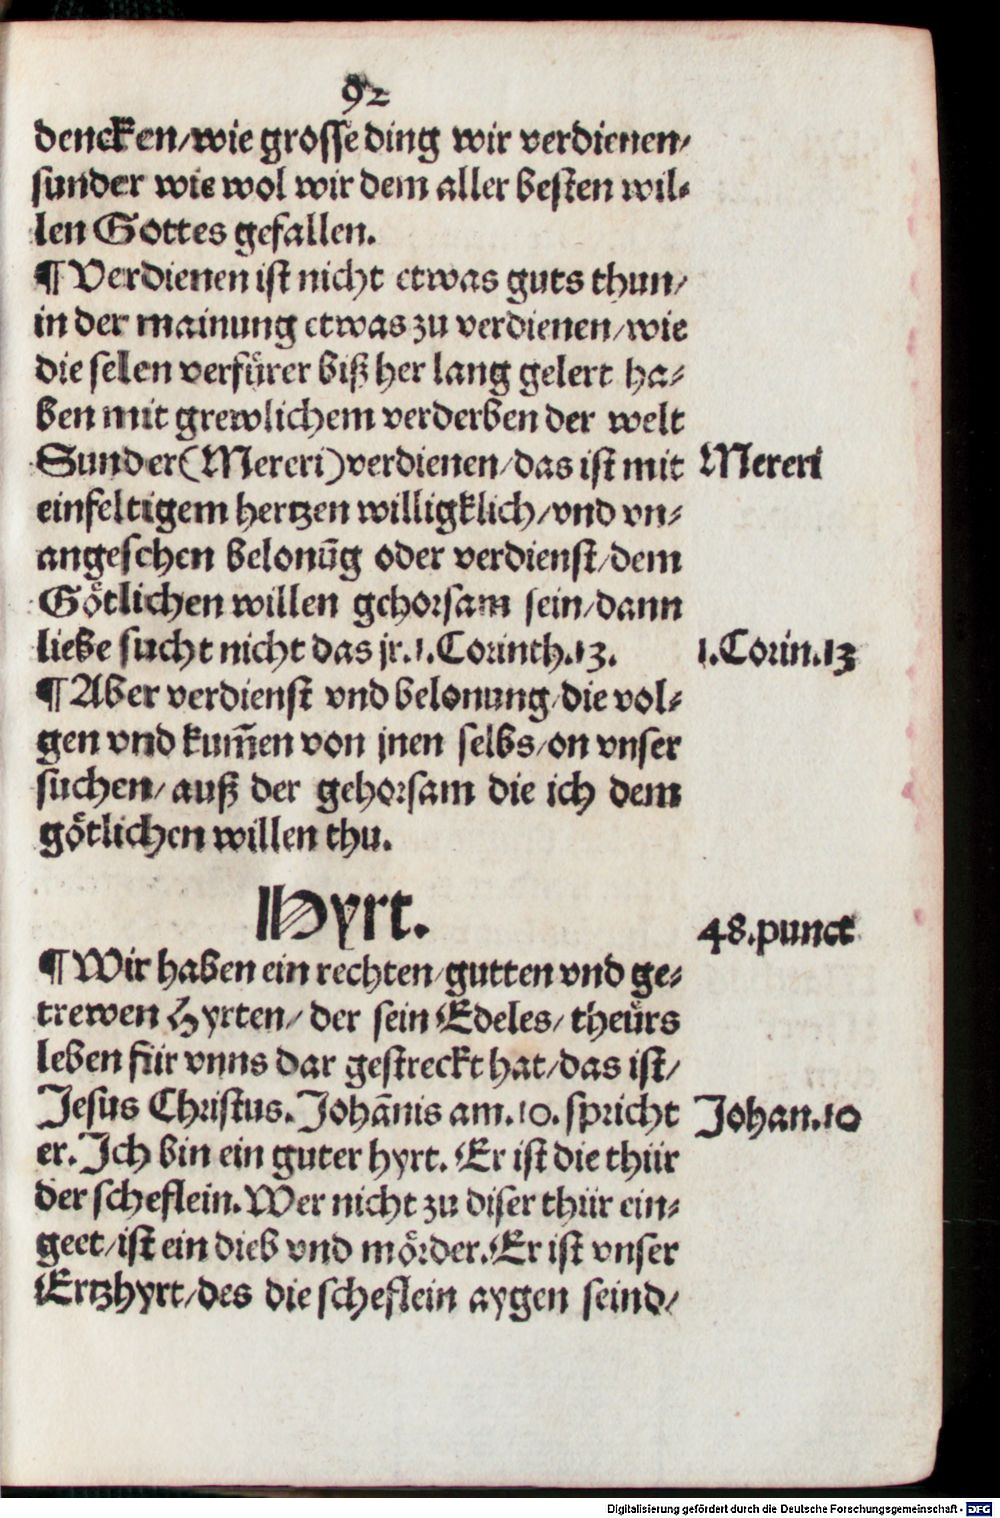 92
dencken/wie grosse ding wir verdienen/
sunder wie wol wir dem aller besten wil⸗
len Gottes gefallen.
¶ Verdienen ist nicht etwas guts thun/
in der mainung etwas zu verdienen/wie
die selen verfuͤrer biß her lang gelert ha⸗
ben mit grewlichem verderben der welt
Sunder(Mereri)verdienen/das ist mit
Mereri
einfeltigem hertzen willigklich/vnd vn⸗
angesehen belonūg oder verdienst/dem
Goͤtlichen willen gehorsam sein/dann
liebe sucht nicht das jr.1.Corinth.13.
1.Corin.13
¶ Aber verdienst vnd belonung/die vol⸗
gen vnd kum̄en von jnen selbs/on vnser
suchen/auß der gehorsam die ich dem
goͤtlichen willen thu.
Hyrt.
48.punct
¶ Wir haben ein rechten/gutten vnd ge⸗
trewen Hyrten/der sein Edeles/theuͤrs
leben für vnns dar gestreckt hat/das ist/
Jesus Christus.Johānis am.10.spricht
Johan.10
er.Ich bin ein guter hyrt.Er ist die thür
der scheflein.Wer nicht zu diser thür ein⸗
geet/ist ein dieb vnd moͤrder.Er ist vnser
Ertzhyrt/des die scheflein aygen seind/
Digitalisierung gefördert durch die Deutsche Forschungsgemeinschaft - DFG